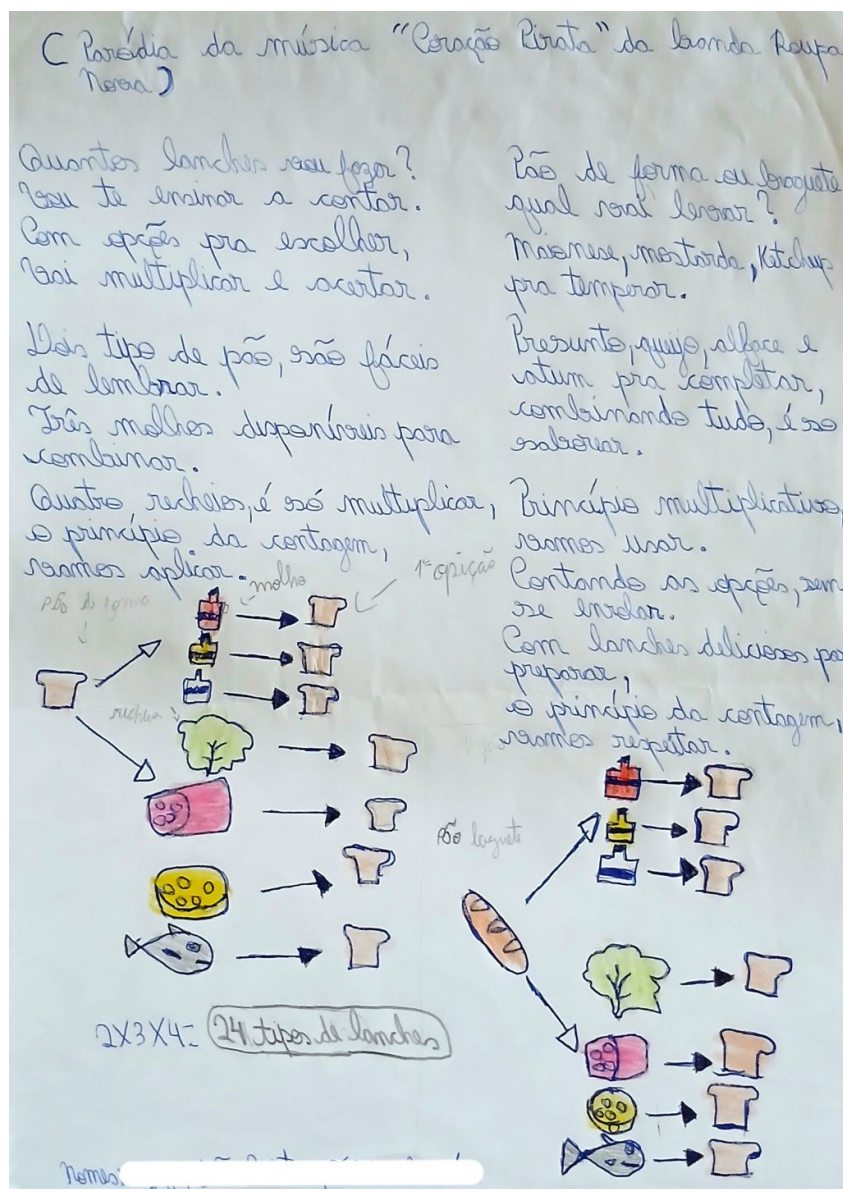 ( Paródia da música "Coração Pirata" da banda Roupa
Nova )
Quantos lanches vou fazer?
Vou te ensinar a contar.
Com opções pra escolher,
Vai multiplicar e acertar.
Dois tipo de pão, são fáceis
de lembrar.
Três molhos disponíveis para
combinar.
Quatro recheios, é só multiplicar,
o princípio da contagem,
vamos aplicar.
Pão de forma ou baguete
qual vai levar?
Maionese, mostarda, Ketchup
pra temperar.
Presunto, queijo, alface e
atum pra completar,
combinando tudo, é so
saborear.
Princípio multiplicativo,
vamos usar.
Contando as opções, sem
se enrolar.
Com lanches deliciosos pa
preparar,
o princípio da contagem,
vamos respeitar.
pão de forma
molho
1ª opição
recheio
pão baguete
2X3X4= 24 tipos de lanches
Nomes: